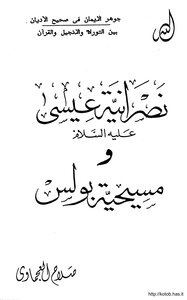 الله
جوهر الإيمان فى صحيح الأديان
بين التوراة والإنجيل والقرآن
نصرانية عيسى
عليه السلام
و
مسيحية بولس
صلاح العجماوى
http://kotob.has.it